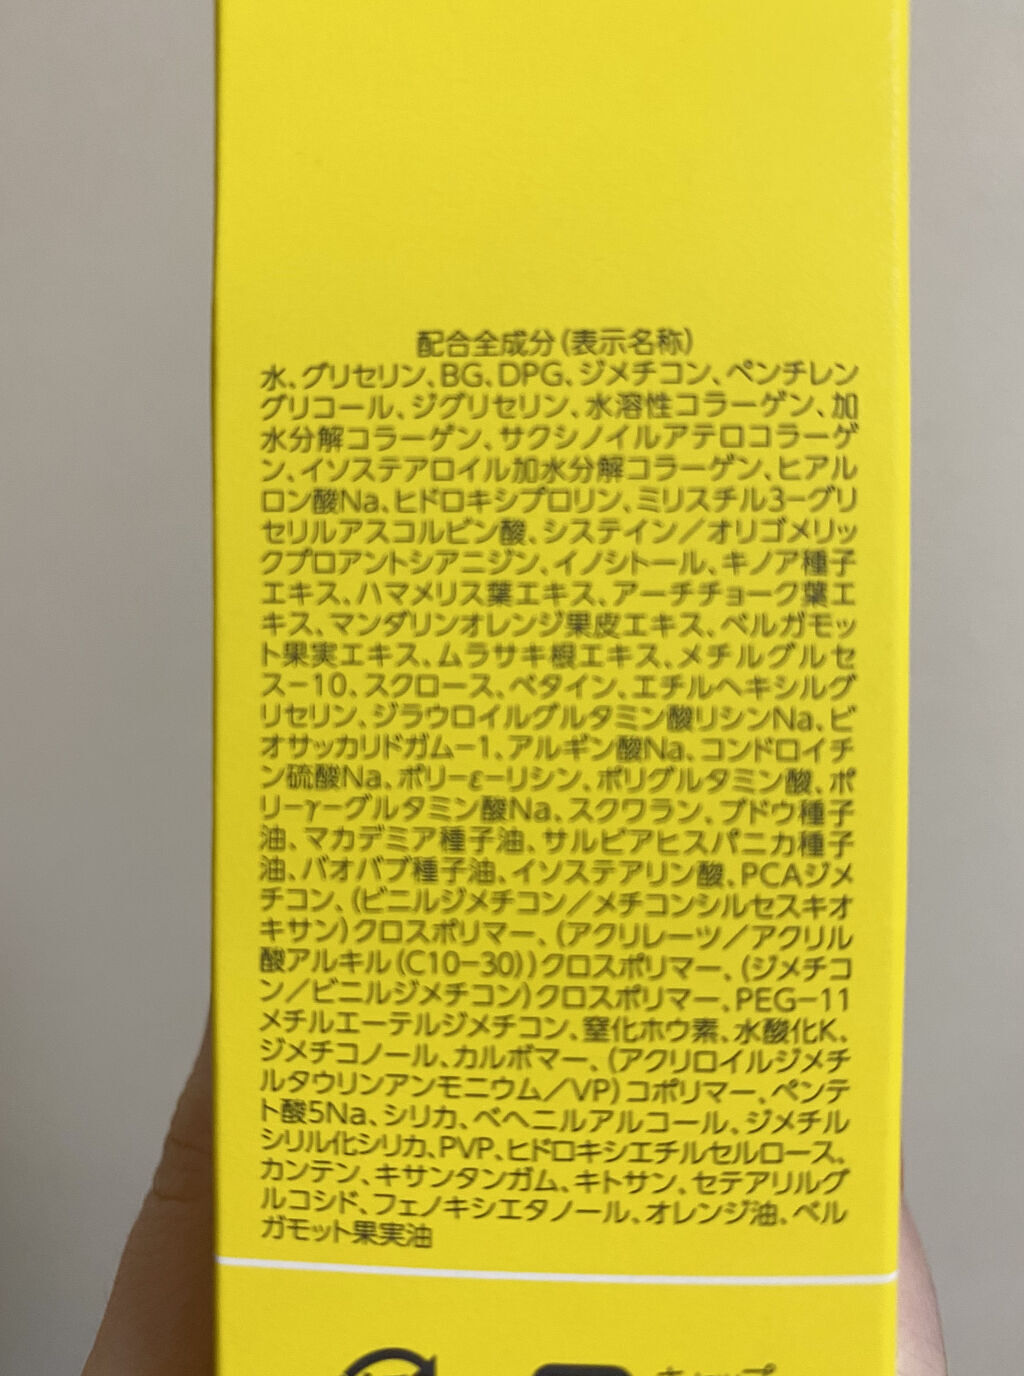 配合全成分(表示名称)
水、グリセリン、BG、DPG、ジメチコン、ペンチレン
グリコール、ジグリセリン、水溶性コラーゲン、加
水分解コラーゲン、サクシノイルアテロコラーゲ
ン、イソステアロイル加水分解コラーゲン、ヒアル
ロン酸Na、ヒドロキシプロリン、ミリスチル3-グリ
セリルアスコルビン酸、システイン/オリゴメリッ
クプロアントシアニジン、イノシトール、キノア種子
エキス、ハマメリス葉エキス、アーチチョーク葉エ
キス、マンダリンオレンジ果皮エキス、ベルガモッ
ト果実エキス、ムラサキ根エキス、メチルグルセ
ス-10、スクロース、ベタイン、エチルヘキシルグ
リセリン、ジラウロイルグルタミン酸リシンNa、ビ
オサッカリドガム-1、アルギン酸Na、コンドロイチ
ン硫酸Na、ポリ-ε-リシン、ポリグルタミン酸、ポ
リ-γ-グルタミン酸Na、スクワラン、ブドウ種子
油、マカデミア種子油、サルビアヒスパニカ種子
油、バオバブ種子油、イソステアリン酸、PCAジメ
チコン、(ビニルジメチコン/メチコンシルセスキオ
キサン)クロスポリマー、(アクリレーツ/アクリル
酸アルキル(C10-30))クロスポリマー、(ジメチコ
ン/ビニルジメチコン)クロスポリマー、PEG-11
メチルエーテルジメチコン、窒化ホウ素、水酸化K、
ジメチコノール、カルボマー、(アクリロイルジメチ
ルタウリンアンモニウム/VP)コポリマー、ペンテ
ト酸5Na、シリカ、ベヘニルアルコール、ジメチル
シリル化シリカ、PVP、ヒドロキシエチルセルロース、
カンテン、キサンタンガム、キトサン、セテアリルグ
ルコシド、フェノキシエタノール、オレンジ油、ベル
ガモット果実油